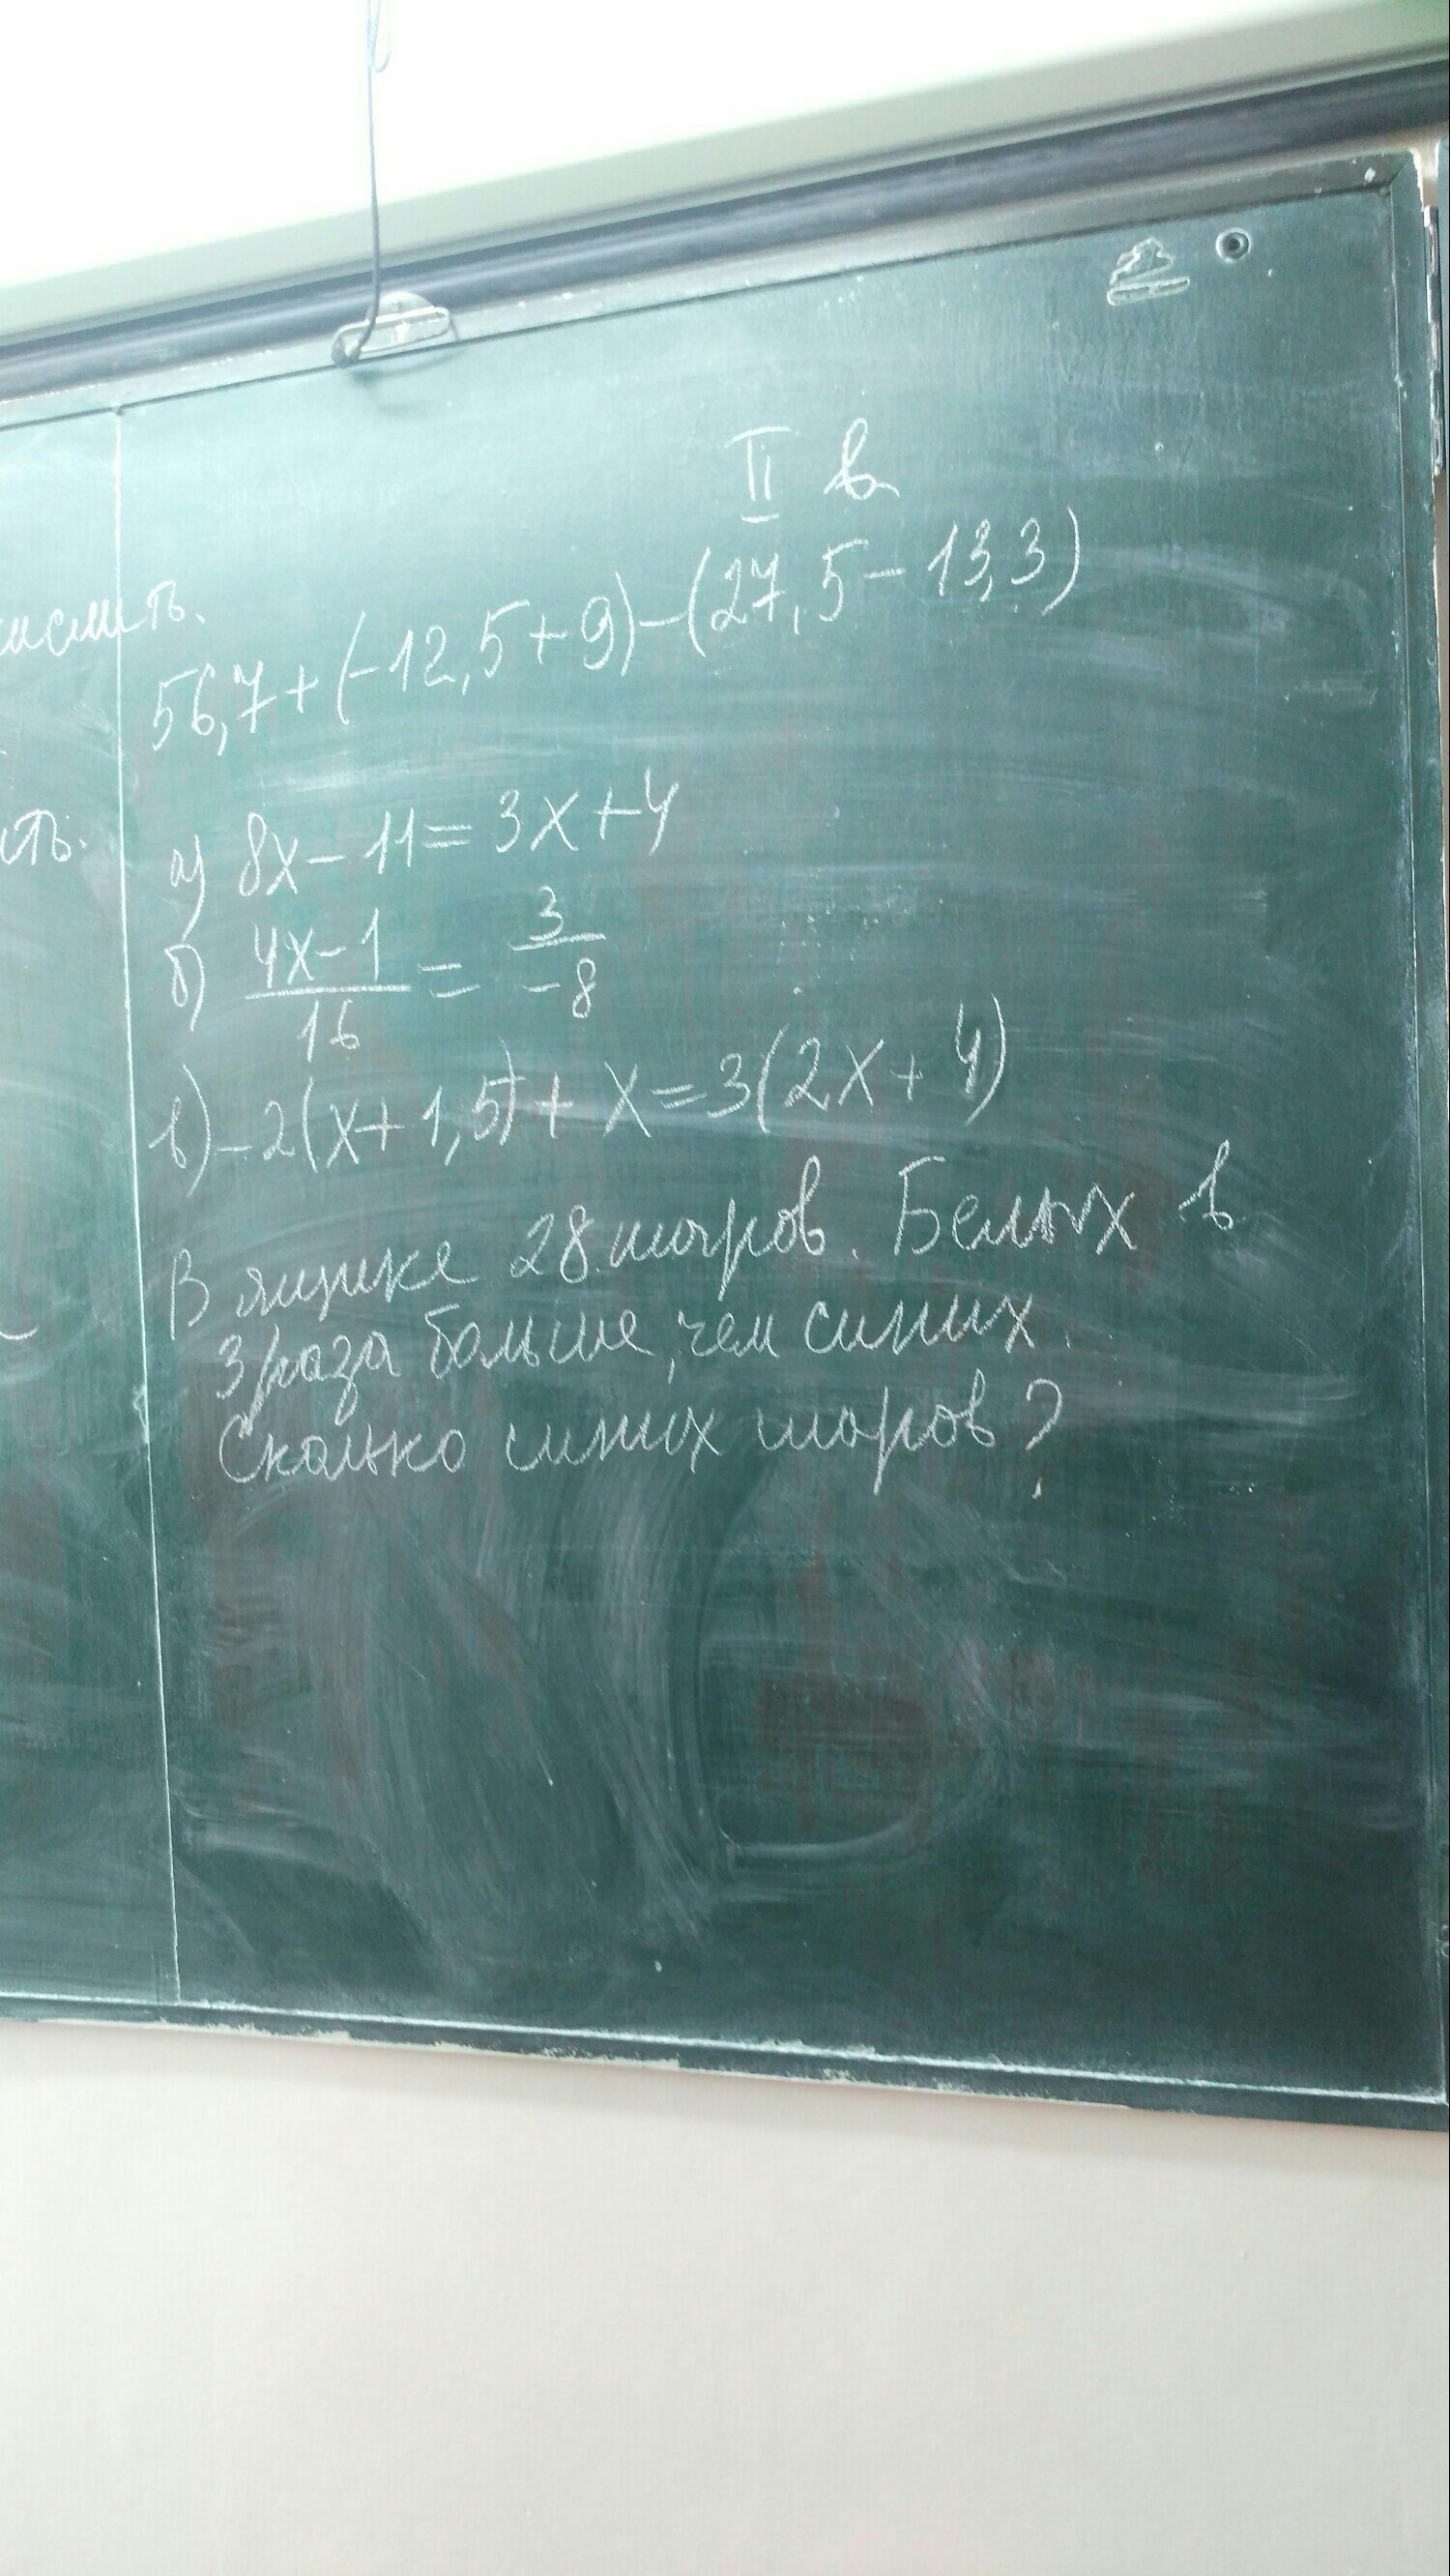 II в
56,7+(-12,5+9)-(27,5-13,3)
а) 8x-11=3x+4
б) (4x-1)/16 = 3/(-8)
в) -2(x+1,5)+x=3(2x+4)
В ящике 28 шаров. Белых в
3 раза больше, чем синих.
Сколько синих шаров?